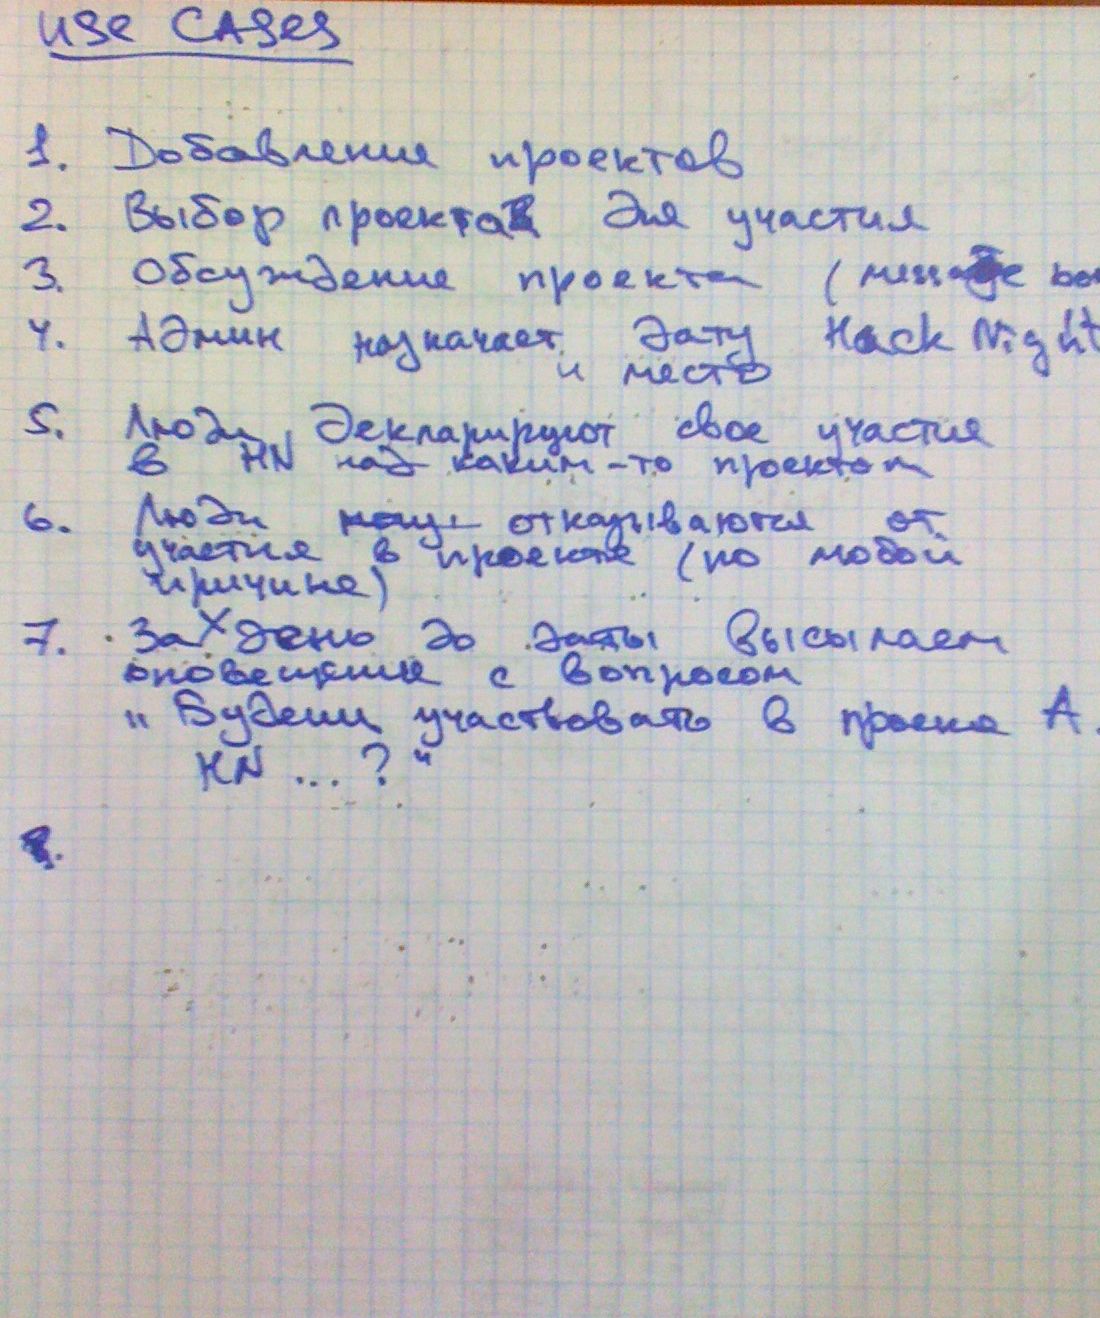 USE CASES
1. Добавление проектов
2. Выбор проекта для участия
3. Обсуждение проекта (message
4. Админ назначает дату Hack Night
и место
5. Люди декларируют свое участие
в HN над каким-то проектом
6. Люди отказываются от
участия в проекте (по любой
причине)
7. За X день до даты высылаем
оповещение с вопросом
"Будешь участвовать в проекте A.
HN ... ?"
8.